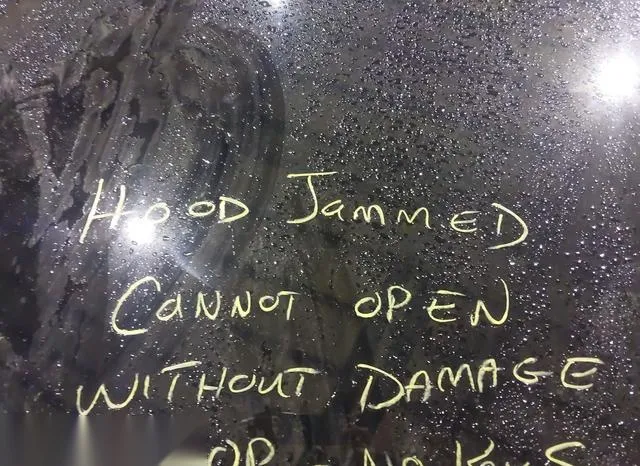 HOOD JammED
CaNNOT OPEN
WITHOUT DAMAGE